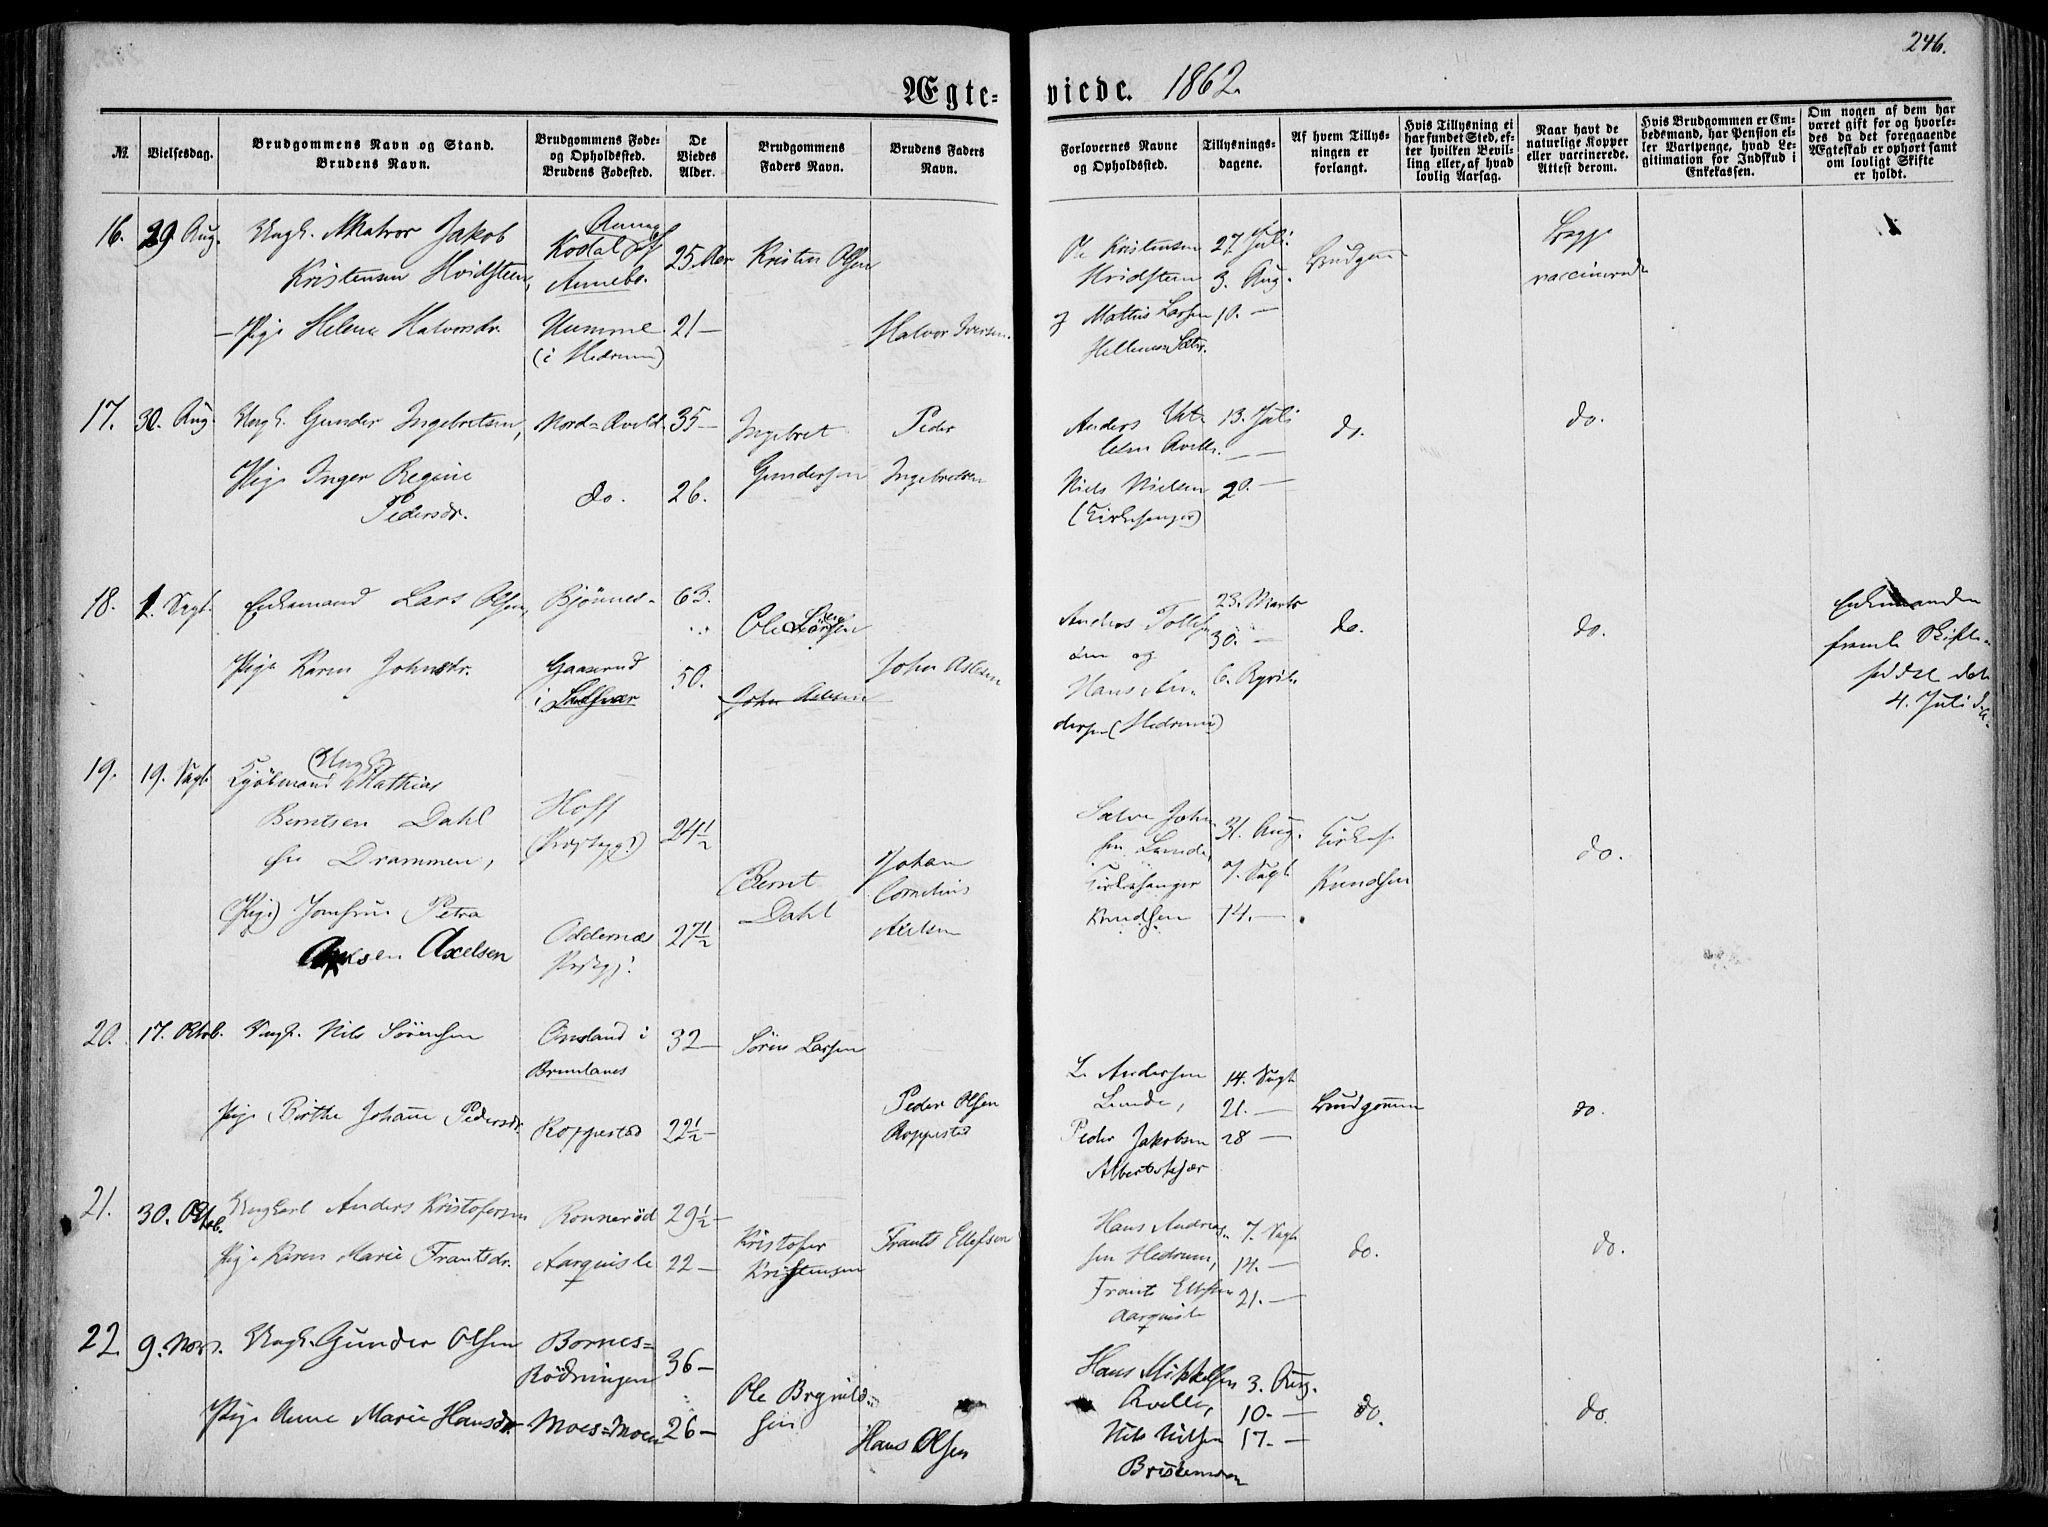 246.
Ægte= viede. 1862.
№.
Vielsesdag.
Brudgommens Navn og Stand.
Brudens Navn.
Brudgommens Føde-
og Opholdssted.
Brudens Fødested.
De
Viedes
Alder.
Brudgommens
Faders Navn.
Brudens Faders
Navn.
Forlovernes Navne
og Opholdssted.
Tillysnings-
dagene.
Af hvem Tillys-
ningen er
forlangt.
Hvis Tillysning ei
har fundet Sted, ef-
ter hvilken Bevil-
ling eller af hvad
lovlig Aarsag.
Naar havt de
naturlige Kopper
eller vaccinerede.
Attest derom.
Hvis Brudgommen er Em-
bedsmand, har Pension el-
ler Vartpenge, hvad Le-
gitimation for Indskud i
Enkekassen.
Om nogen af dem har
været gift for og hvorle-
des da det foregaaende
Ægteskab er ophørt samt
om lovligt Skifte
er holdt.
16. 29 Aug. Ungk. Matros Jakob
Kristensen Hvidsteen,
Kodal
Annebo.
25 Aar Kristen Olsen
Ole Kristensen
Hvidsteen
27 Juli.
3. Aug.
Brudgom
Begge
vaccinerede
Pige Helene Halvorsdr.
Humme
(i Hedrum)
21 — Halvor Iversen.
og Mathis Larsen
10. —
17. 30. Aug. Ungk. Gunder Ingebretsen,
Nord=Kvelde 35 —
Ingebret
Gundersen
Peder
Ingebretsen
Anders
13. Juli
do. do.
Pige Inger Regine
Pedersdr.
do. 26.
Niels Nielsen
(Kirkesanger)
20. —
18. 1. Sept. Enkemand Lars Olsen,
Bjönnes- 63.
Ole
Anders
23. Marts
30. —
6. April
do. do.
Enkemanden
Skifte-
4. Juli d. A.
Pige Karen Johnsdr.
Gaaserud
i
50.
John Aslesen
John Aslesen
og
Hans An-
dersen (Hedrum)
19. 19. Sept (Ungk)
Kjöbmand Mathias
Berntsen Dahl
fra Drammen,
Hoff
(Præstegj.)
24½
Bernt
Dahl
Johan
Cornelius
Axelsen
Salve John-
sen Lunde,
Kirkesanger
Knudsen
31. Aug.
7. Sept
14. —
Kirkes.
Knudsen
do.
(Pige) Jomfru Petra
Axelsen
Oddernæs
Præstegj.
27½
20. 17. Oktob. Ungk. Nils Sörensen
i
Brunlanes
32 — Sören Larsen
L. Andersen
Lunde,
14. Sept
21. —
28 —
Brudgommen
do.
Pige Birthe Johanne Pedersdr.
Koppestad 22½ —
Peder Olsen
Koppestad
Peder Jakobsen
21. 30. Oktob. Ungkarl Anders Kristofersen
Ronneröd 29½ —
Kristofer
Kristensen
Frants Ellefsen
Hans Andreas-
sen Hedrum,
7. Sept
14. —
21. —
do. do.
Pige Karen Marie Frantsdr.
Aarquisle 22 —
Frants Ellefsen
Aarquisle
22. 9. Nov. Ungk. Gunder Olsen
Bornes=
Rödningen
36 —
Ole Brynild-
sen
Hans Olsen
Hans Mikkelsen
Kvelle,
3. Aug.
10. —
17. —
do. do.
Pige Anne Marie Hansdr.
Moes=Moen 26 —
Nils Nilsen